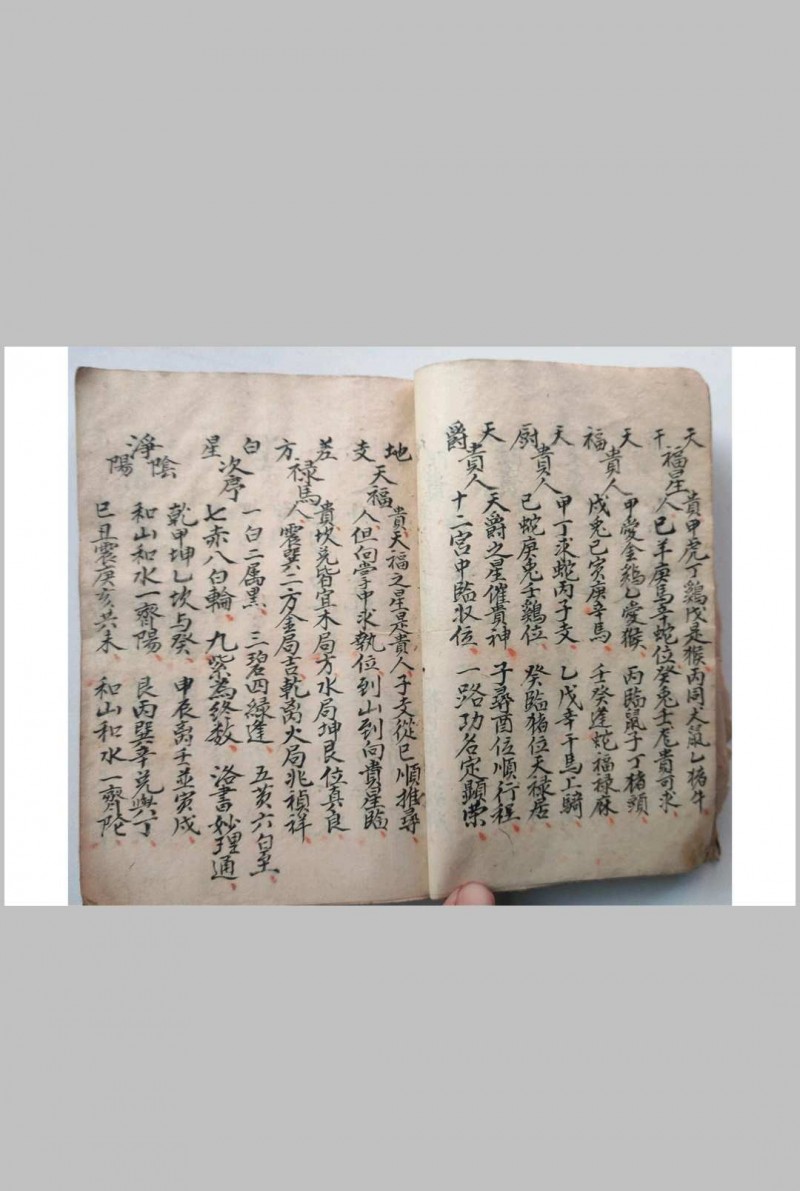 天干福星貴人
貴甲虎丁鷄戊是猴丙同犬鼠乙猪牛
己羊庚馬辛蛇位癸兔壬尨貴可求
天福貴人
甲愛金鷄乙愛猴 丙臨鼠子丁猪頭
戊兔己寅庚辛馬 壬癸逢蛇福禄庥
天厨貴人
甲丁求蛇丙子支 乙戊辛干馬上騎
己蛇庚兔壬鷄位 癸臨猪位天禄居
天爵貴人
天爵之星催貴神 子尋酉位順行程
十二宮中臨收位 一路功名定顯荣
地支天福
貴天福之星是貴人子支從巳順推尋
人但向掌中求執位到山到向貴星臨
差方禄馬
貴坎兑皆宜木局方水局坤艮位真良
人震巽二方金局吉乾离火局兆禎祥
白星次序
一白二属黑 三碧四緑逢 五黄六白至
七赤八白輪 九紫為終数 洛書妙理通
淨陰陽
乾甲坤乙坎与癸 申辰离壬並寅戌
和山和水一齊陽 艮丙巽辛兑與丁
巳丑震庚亥共未 和山和水一齊陰